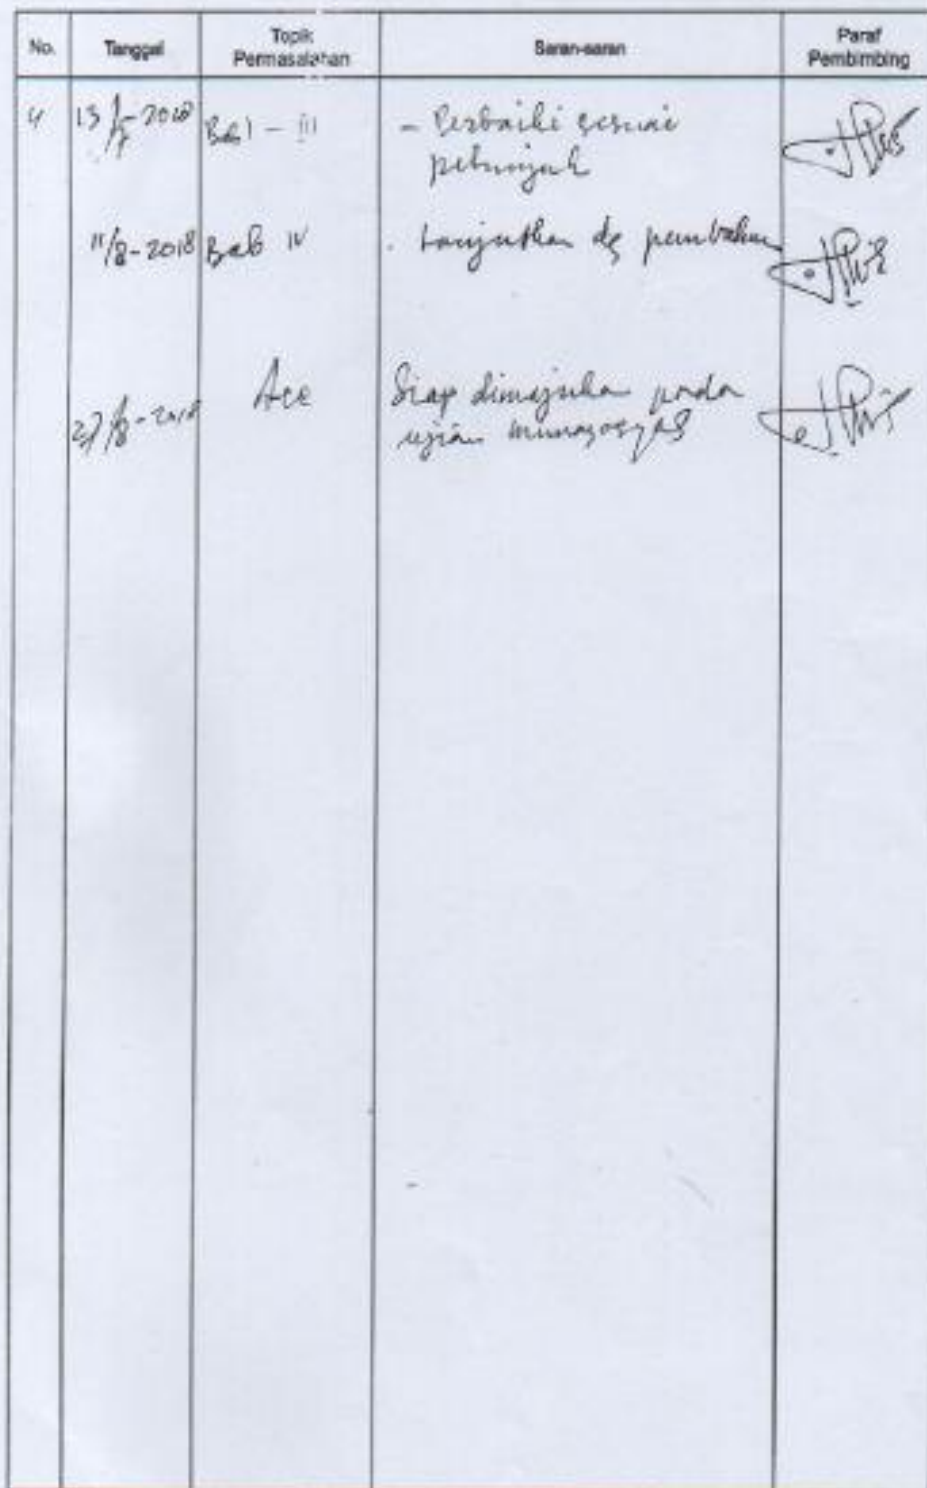 No.
Tanggal
Topik
Permasalahan
Saran-saran
Paraf
Pembimbing
4
13/7-2018
Bab I - III
- Perbaiki sesuai
petunjuk
11/8-2018
Bab IV
. Lanjutkan dg
27/8-2018
Acc
Siap dimajukan pada
ujian munaqosyas